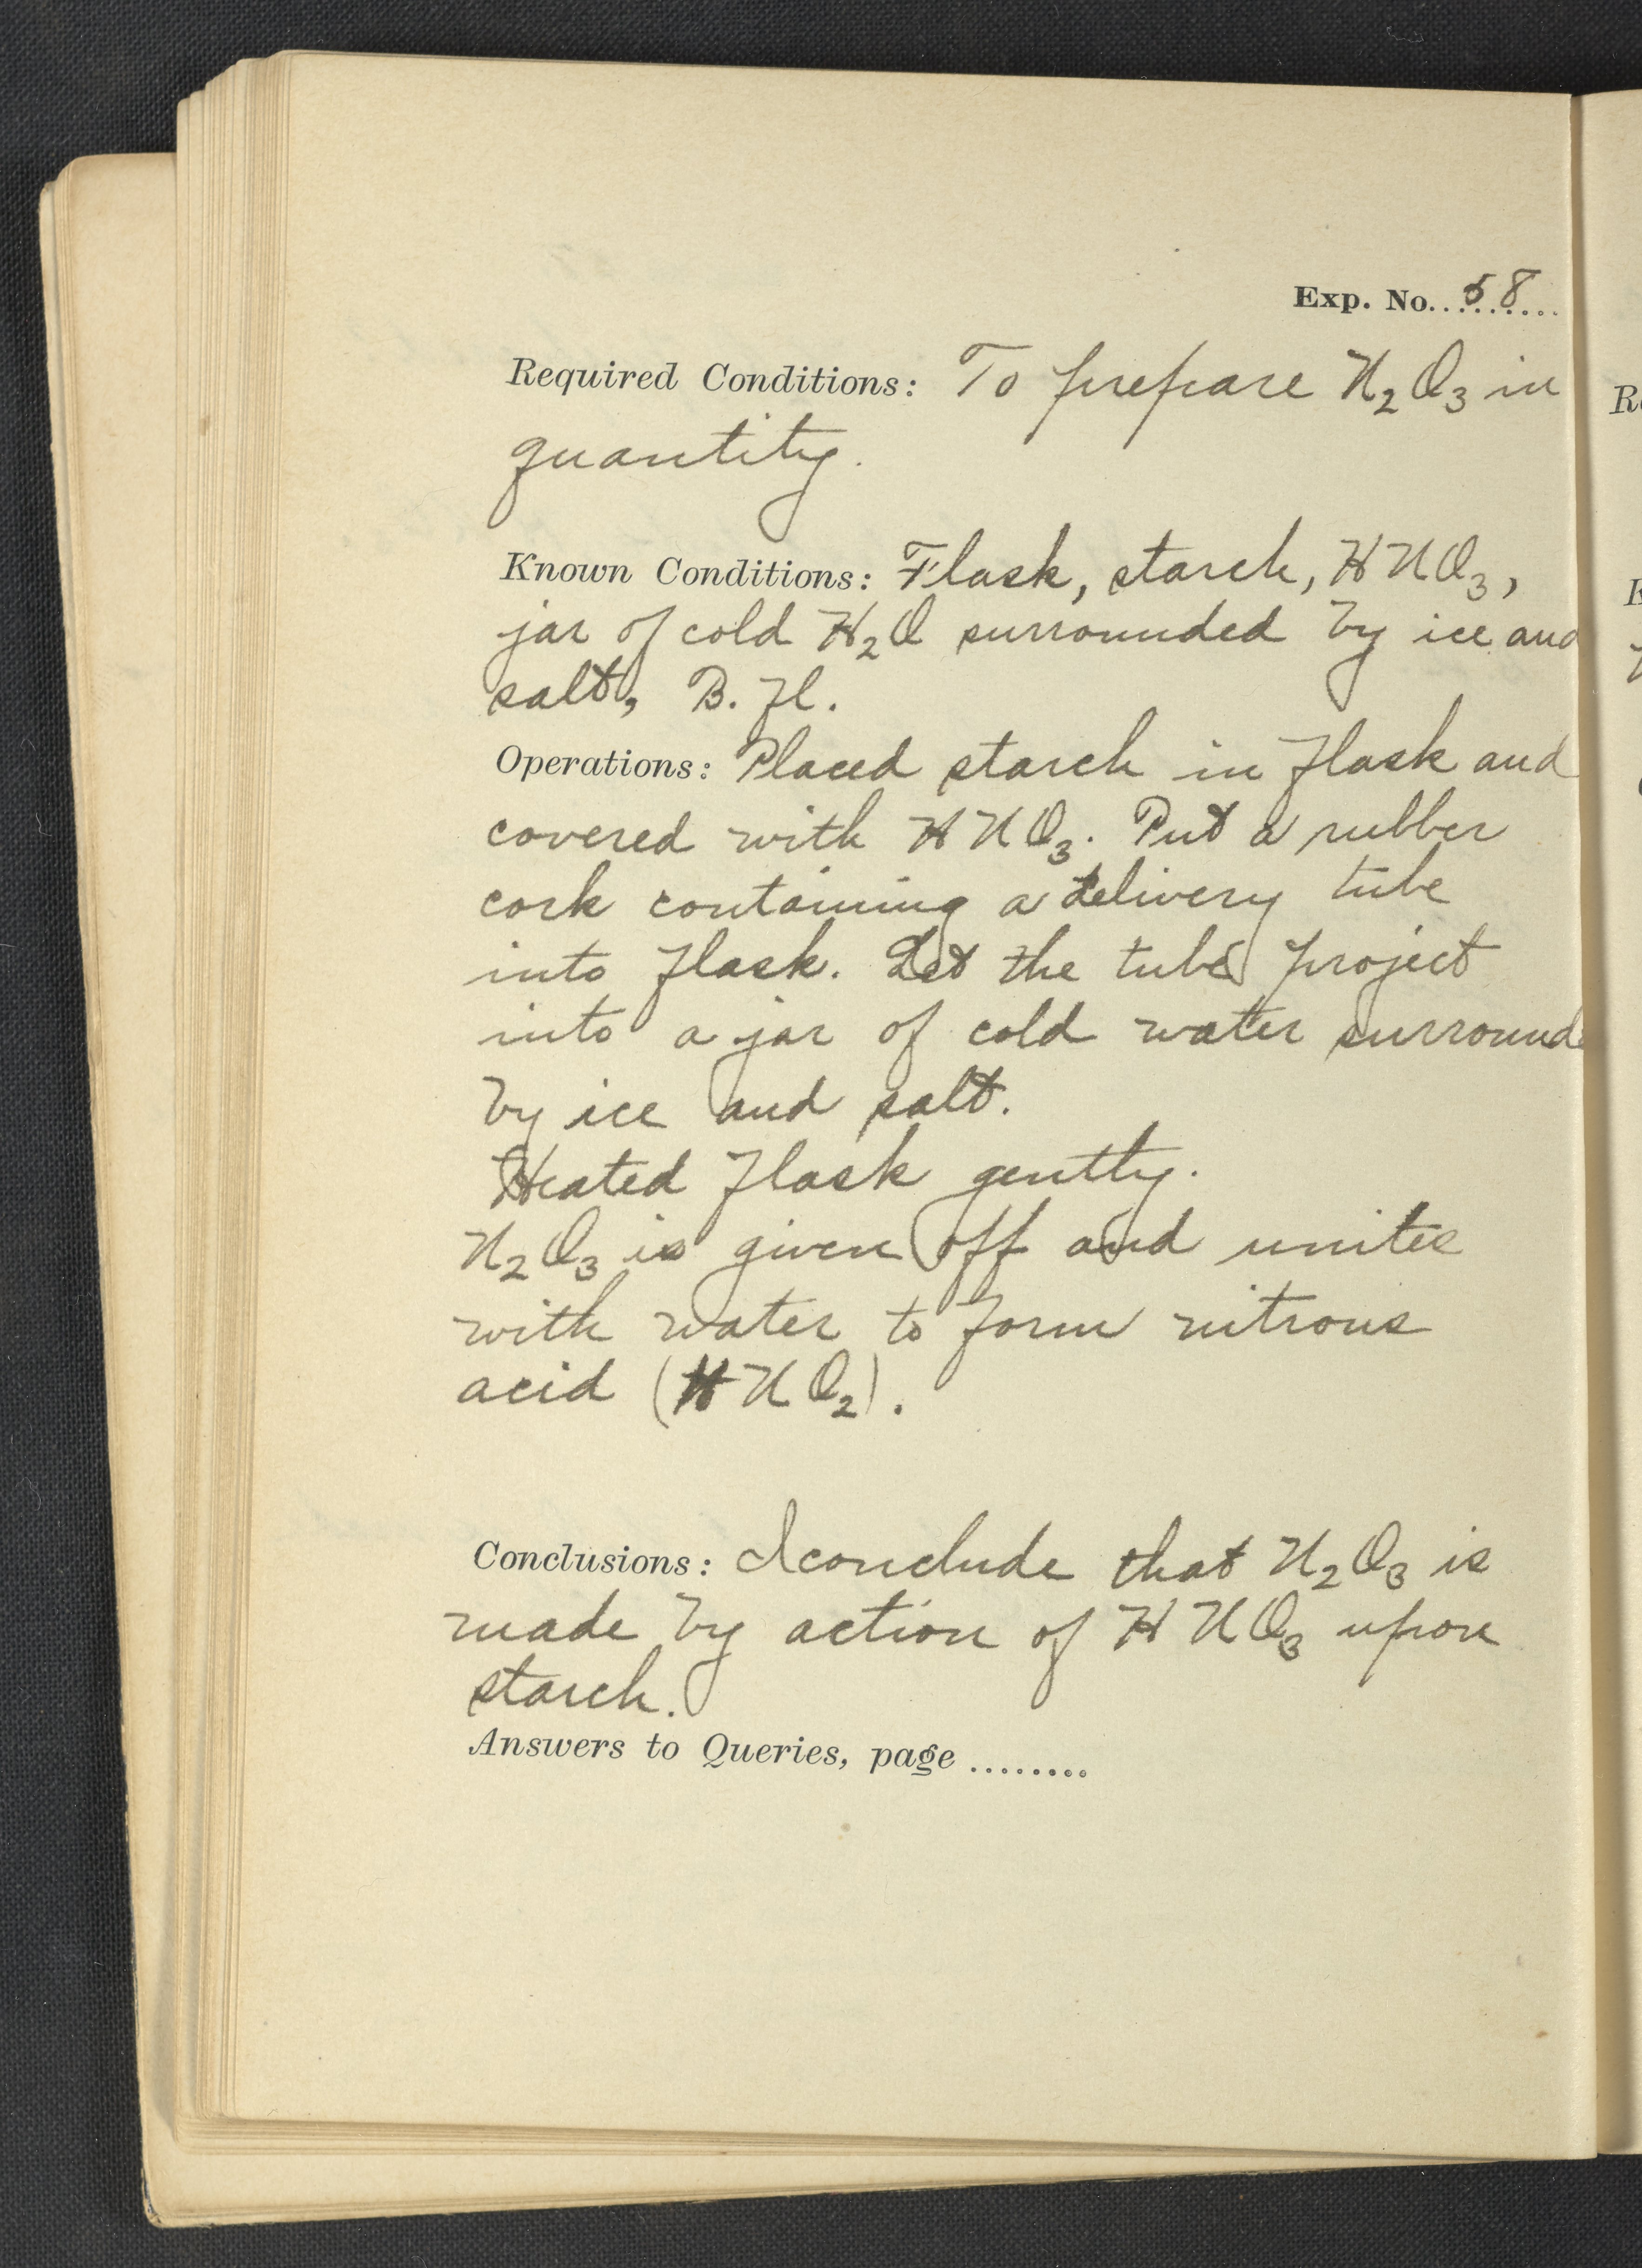 Exp. No. 58
Required Conditions: To prepare N₂O₃ in
quantity.
Known Conditions: Flask, starch, HNO₃,
jar of cold H₂O surrounded by ice and
salt, B. Fl.
Operations: Placed starch in flask and
covered with HNO₃. Put a rubber
cork containing a delivery tube
into flask. Let the tube project
into a jar of cold water surrounde
by ice and salt.
Heated flask gently.
N₂O₃ is given off and unites
with water to form nitrous
acid (HNO₂).
Conclusions: I conclude that N₂O₃ is
made by action of HNO₃ upon
starch.
Answers to Queries, page ........